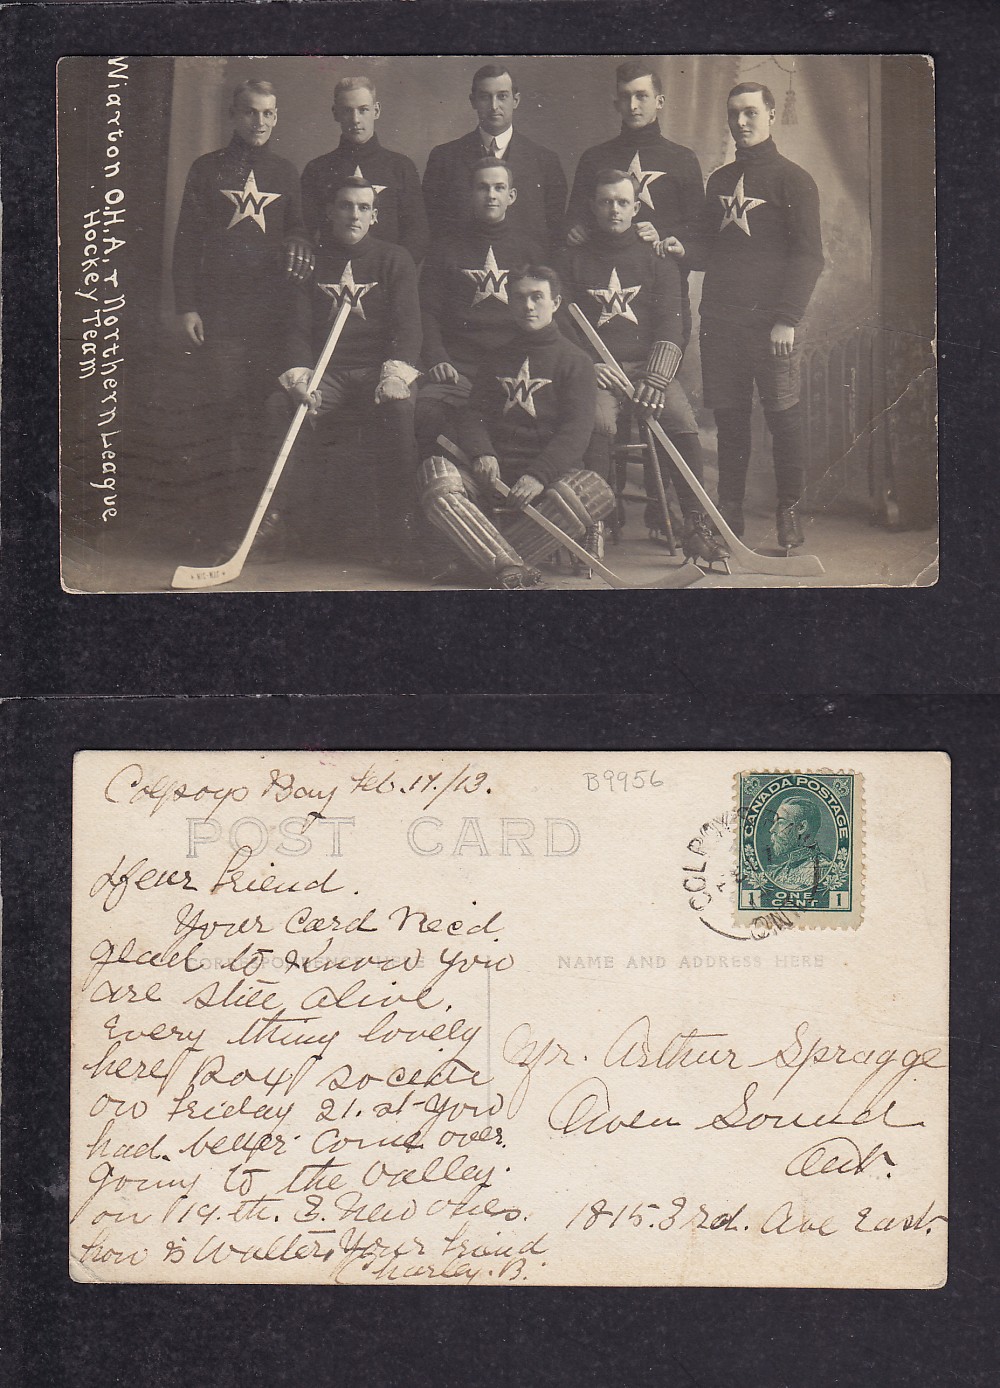 Wiarton O.H.A. & Northern League
Hockey Team
W
W
W
W
W
W
W
Colpoys Bay Feb. 17./13.
B9956
POST CARD
CANADA POSTAGE
1 ONE CENT 1
COLPOY
ONT
Dear Friend.
Your Card Rec'd
glad to Know you
are still alive.
Every thing lovely
here Box Social
on Friday 21.st you
had. better Come over.
going to the valley.
on 19.th. 3. New ones.
how is Walter, Your Friend
Charley. B.
CORRESPONDENCE HERE
NAME AND ADDRESS HERE
Mr. Arthur Spragge
Owen Sound
Ont.
1815. 3rd. Ave East.